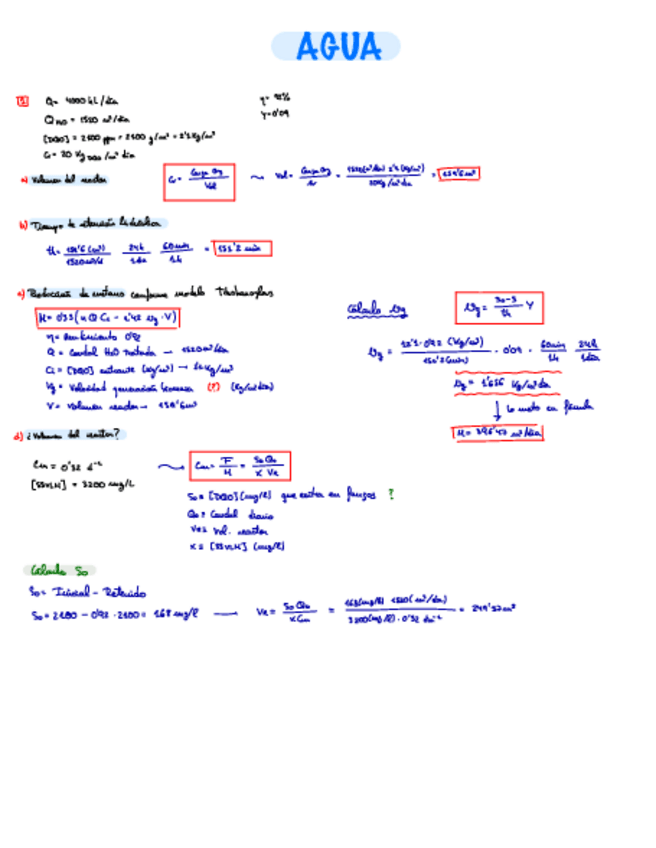 AGUA
Q = 4000 hL/día
η = 92%
Q H2O = 1520 m³/día
Y = 0'09
[DQO] = 2100 ppm = 2100 g/m³ = 2'1 Kg/m³
Cv = 20 Kg DQO/m³ día
a) Volumen del reactor
Cv = Carga Org / Vol ~ Vol = Carga Org / Cv = 1520 (m³/día) 2'1 (Kg/m³) / 20 Kg/m³ día = 159'6 m³
b) Tiempo de retención hidráulica
th = 159'6 (m³) / 1520 m³/d · 24h / 1día · 60min / 1h = 151'2 min
c) Producción de metano conforme modelo
Cálculo Vg
Vg = So-S / th Y
M = 0'35 (η Q Ci - 1'42 Vg · V)
η = Rendimiento 0'92
Q = Caudal H2O tratada → 1520 m³/día
Ci = [DQO] entrante (Kg/m³) → 2'1 Kg/m³
Vg = Velocidad generación biomasa (?) (Kg/m³ día)
V = Volumen reactor → 159'6 m³
Vg = 2'1 · 0'92 (Kg/m³) / 151'2 (min) · 0'09 · 60min / 1h · 24h / 1día
Vg = 1'656 Kg/m³ día
↓ lo meto en fórmula
d) ¿Volumen del reactor?
Cm = 0'32 d⁻¹
[SSVLM] = 3200 mg/L
Cm = F / M = So Qo / X Vr
So = [DQO] (mg/l) que entra en fangos ?
Qo = Caudal diario
Vr = Vol. reactor
X = [SSVLM] (mg/l)
Cálculo So
So = Inicial - Retenido
So = 2100 - 0'92 · 2100 = 168 mg/l → Vr = So Qo / X Cm = 168 (mg/l) 1520 (m³/día) / 3200 (mg/l) · 0'32 día⁻¹ = 249'37 m³